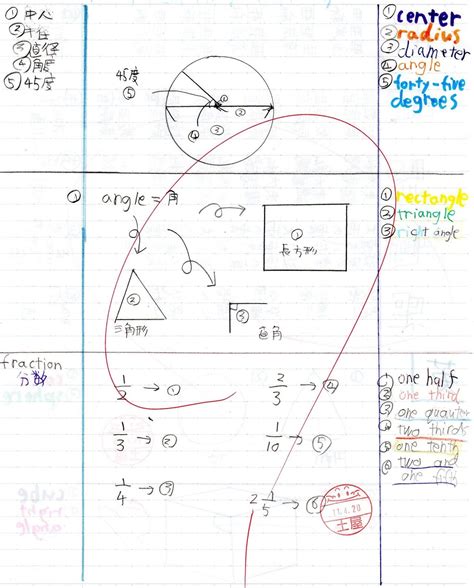 ① 中心
② 半径
③ 直径
④ 角度
⑤ 45度
45度
⑤
①
②
④
③
① center
② radius
③ diameter
④ angle
⑤ forty-five
degrees
① angle = 角
①
長方形
②
三角形
③
直角
① rectangle
② triangle
③ right angle
fraction
分数
1/2 → ①
2/3 → ④
1/3 → ②
1/10 → ⑤
1/4 → ③
2 1/5 → ⑥
11.4.20
土屋
① one half
② one third
③ one quauter
④ two thirds
⑤ one tenth
⑥ two and
one fifth